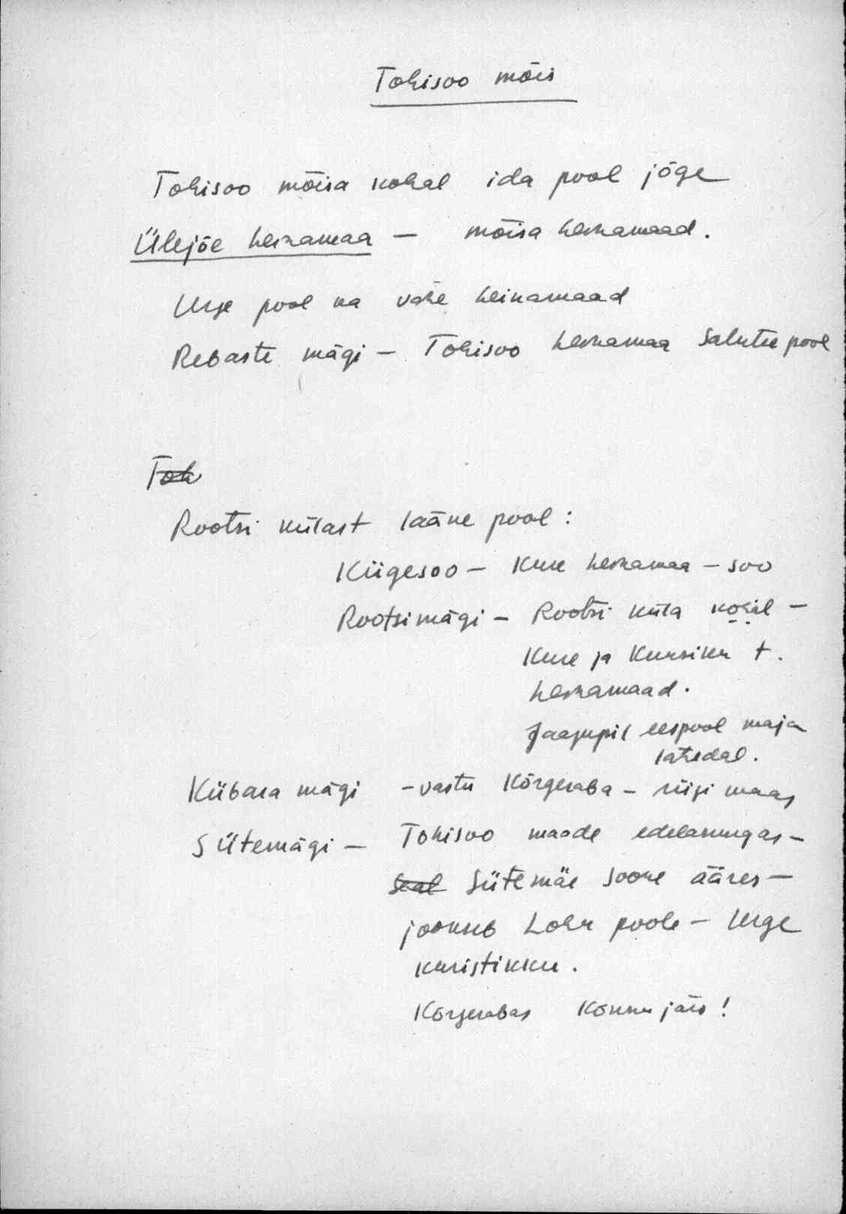 Tohisoo mõis
Tohisoo mõisa kohal ida pool jõge
Ülejõe heinamaa – mõisa heinamaad.
Urge pool ka vähe heinamaad
Rebaste mägi – Tohisoo heinamaa Salutse pool
Toh
Rootsi külast lääne pool:
Kiigesoo – Kure heinamaa – soo
Rootsimägi – Rootsi küla kohal –
Kure ja Kuusiku t.
heinamaad.
Jaagupil eespool maja
lähedal.
Kübara mägi – vastu Kõrgeraba – riigi maas
Sütemägi – Tohisoo maade edelanurgas –
Seal Sütemäe soone ääres –
jookseb Lohu poole – Urge
kuristikku.
Kõrgerabas Konnu järv!